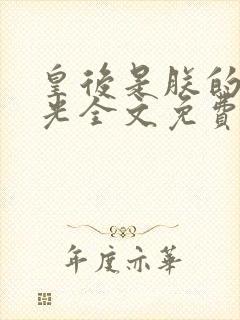 皇後是朕的
光全文免費
年度亦華